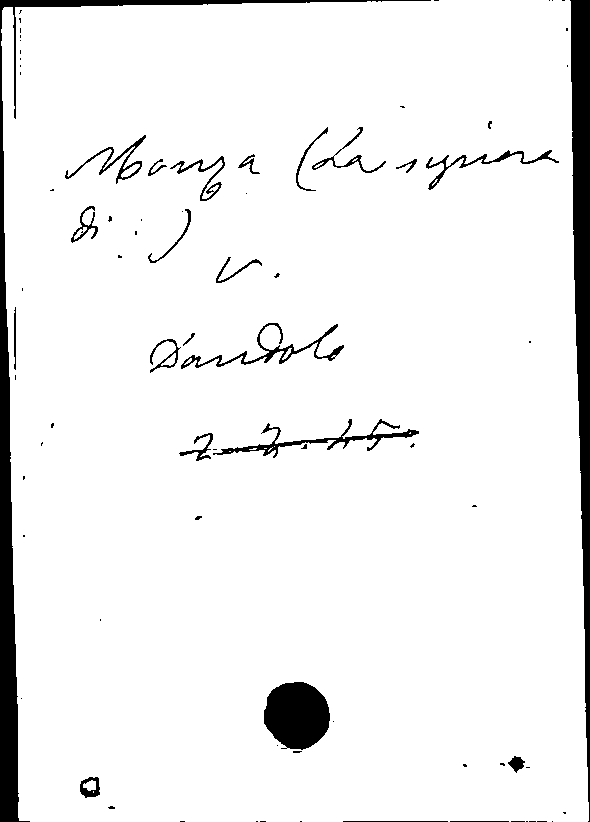 Monza (La signora
di..)
V.
Dandolo
2 2. 45.